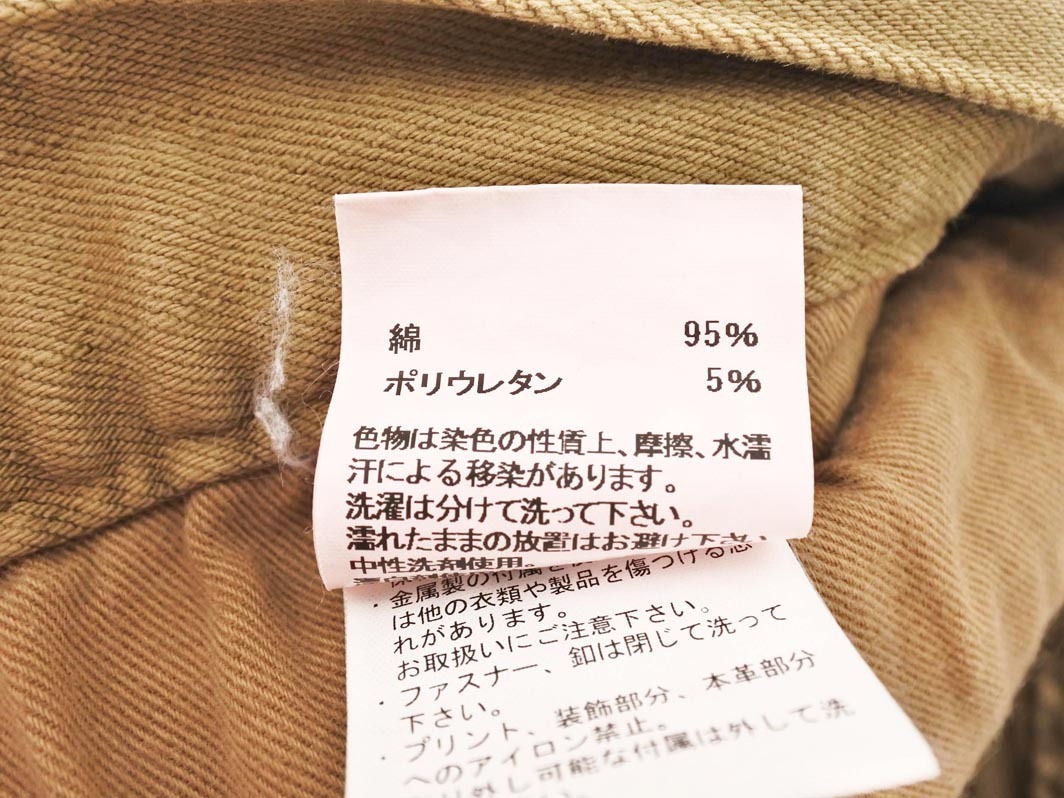 綿 95%
ポリウレタン 5%
色物は染色の性質上、摩擦、水濡
汗による移染があります。
洗濯は分けて洗って下さい。
濡れたままの放置はお避け下さい
中性洗剤使用。
・金属製の付属を
は他の衣類や製品を傷つける恐
れがあります。
お取扱いにご注意下さい。
・ファスナー、釦は閉じて洗って
下さい。
・プリント、装飾部分、本革部分
へのアイロン禁止。
外し可能な付属は外して洗